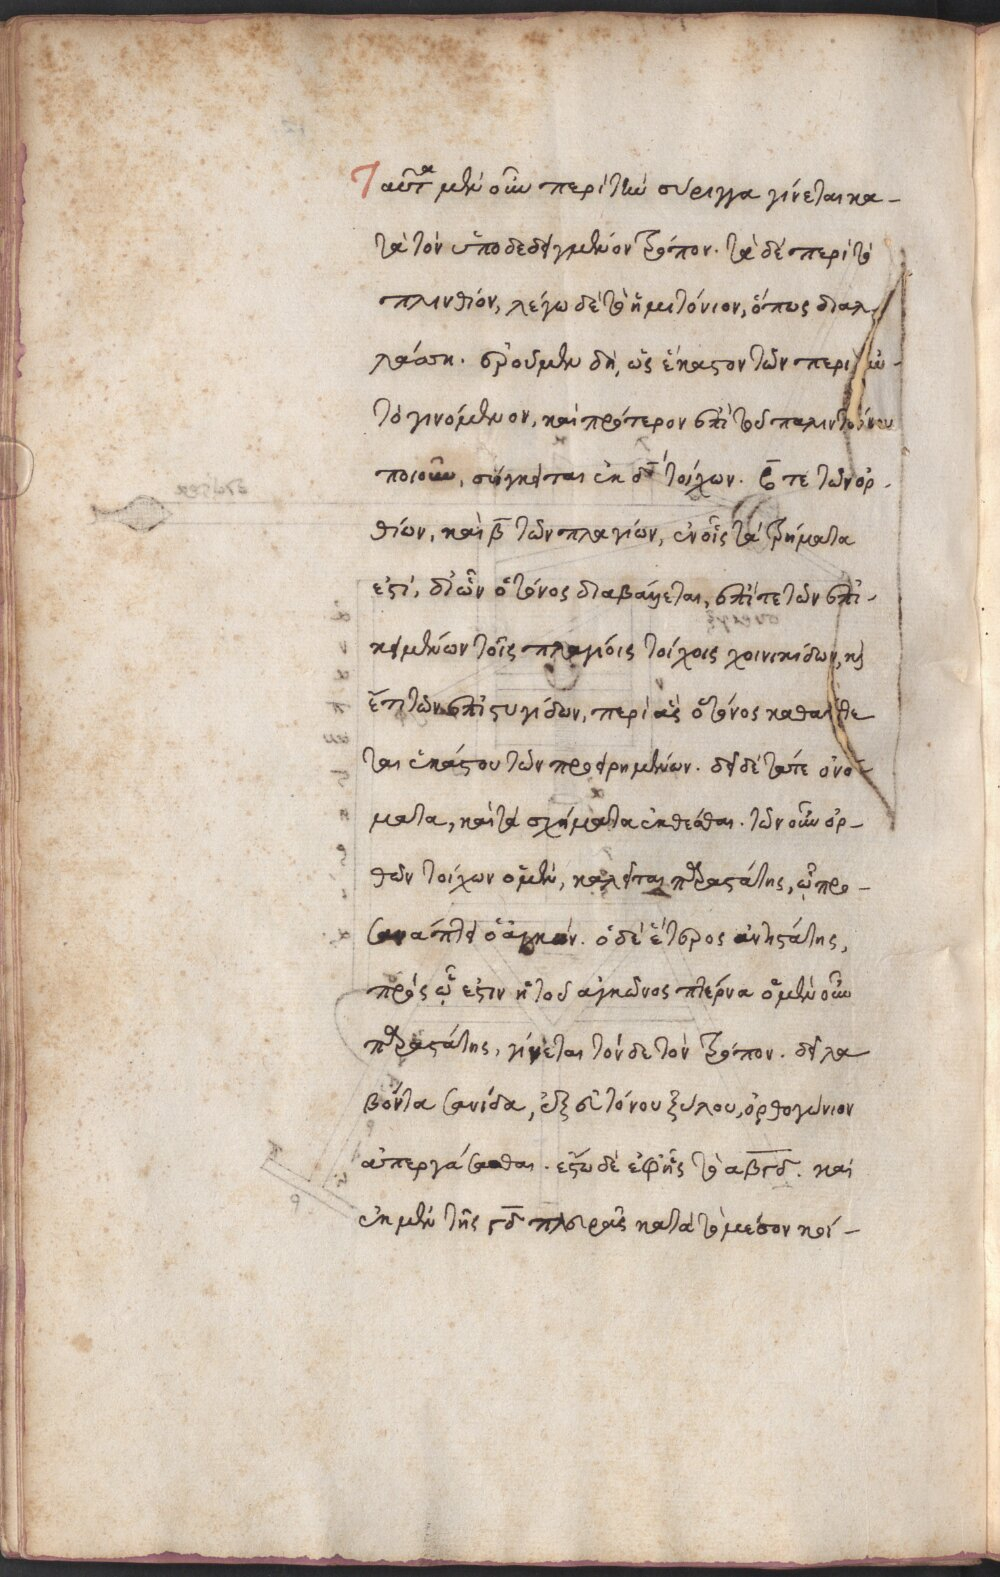 Ταῦτα μὲν οὖν περὶ τὴν σύριγγα γίνεται κα-
τὰ τὸν ὑποδεδειγμένον τρόπον. τὰ δὲ περὶ τὸ
πλινθίον, λέγω δὲ τὸ ἡμιτόνιον, ὅπως διαλ
λάσσῃ. ἐροῦμεν δὴ, ὡς ἕκαστον τῶν περὶ
τὸ γινόμενον, καὶ πρότερον ἐπὶ τοῦ παλιντόνου
ποιοῦν, σύγκειται ἐκ δ̅ τοίχων. β̅ τε τῶν ὀρ-
θίων, καὶ β̅ τῶν πλαγίων, ἐν οἷς τὰ τρήματα
ἐστὶ, δι' ὧν ὁ τόνος διαβάλλεται, ἐπί τε τῶν ἐπι-
κειμένων τοῖς πλαγίοις τοίχοις χοινικίδων, κ̀
ἔτι τῶν ἐπιζυγίδων, περὶ ἃς ὁ τόνος καθαιρεῖ
ται ἑκάστου τῶν προειρημένων. δεῖ δὲ τά τε ὀνό-
ματα, καὶ τὰ σχήματα ἐκθέσθαι. τῶν οὖν ὀρ-
θῶν τοίχων ὁ μὲν, καλεῖται παραστάτης, ᾧ προ-
σανάπτει ὁ ἀγκών. ὁ δὲ ἕτερος ἀντιστάτης,
πρὸς ᾧ ἐστιν ἡ τοῦ ἀγκῶνος πτέρνα ὁ μὲν οὖν
παραστάτης, γίνεται τόνδε τὸν τρόπον. δεῖ λα
βόντα σανίδα, ἐξ εὐτόνου ξύλου, ὀρθογώνιον
ἀπεργάσασθαι. ἔξω δὲ ἐφ' ἧς τὸ α̅β̅γ̅δ̅. καὶ
ἐκ μὲν τῆς γ̅δ̅ πλευρᾶς κατὰ τὸ μέσον κοί-